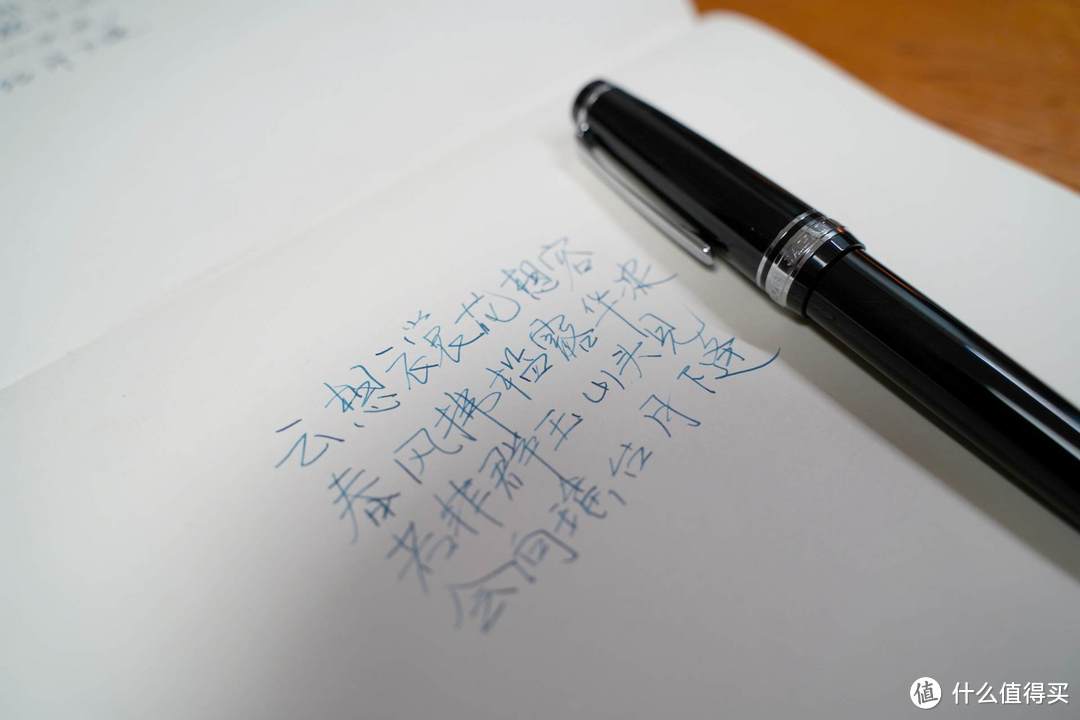 云想衣裳花想容
春风拂槛露华浓
若非群玉山头见
会向瑶台月下逢
值 什么值得买